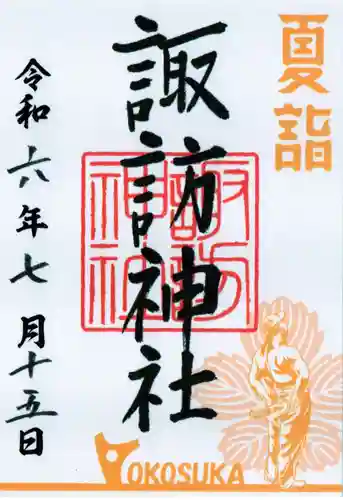 夏詣
諏訪神社
諏訪
神社
令和六年七月十五日
YOKOSUKA